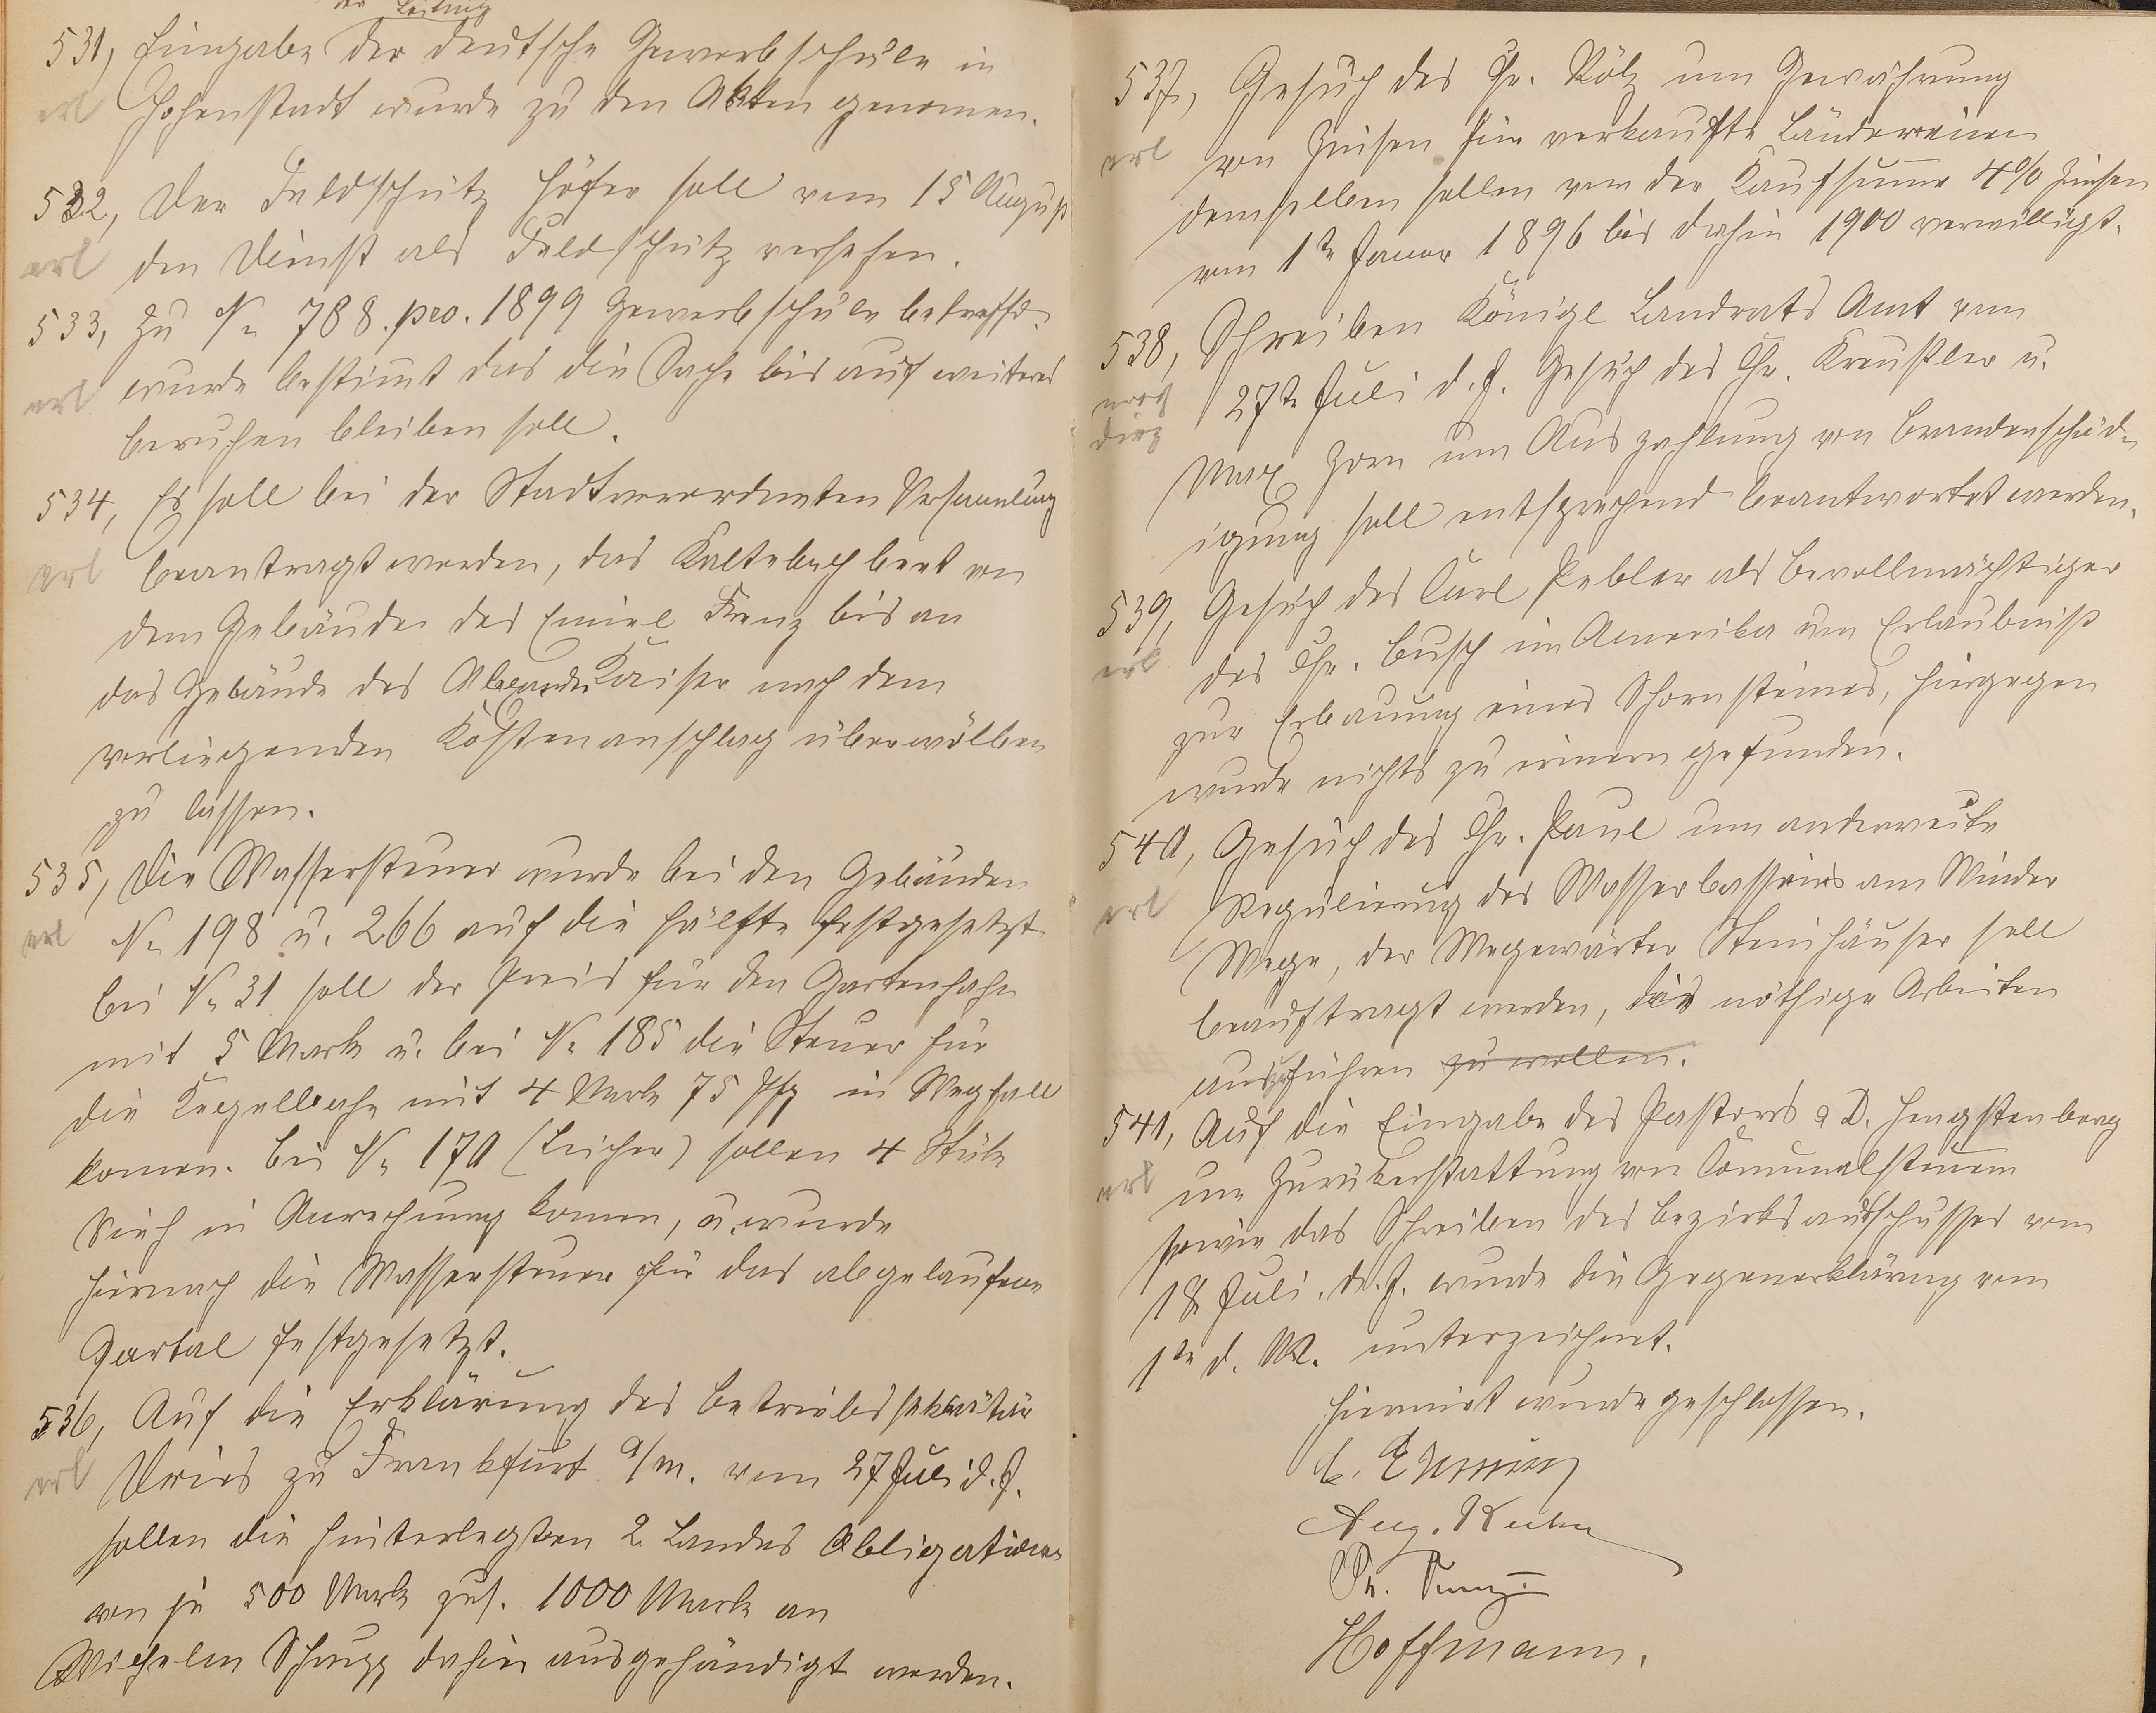 der Leitung
531, Eingabe der deutsche Gewerbschule in
erl Hohenstadt wurde zu den Akten genomen.
532, Der Feldschütz Höfer soll vom 15 August
erl den Dienst als Feldschütz versehen.
533, Zu No 788. pro. 1899 Gewerbschule betreffd.
erl wurde bestimt das die Sache bis auf weiteres
beruhen bleiben soll.
534, Es soll bei der Stadtverordneten Versamlung
erl beantragt werden, das Kaltebachbeet von
dem Gebäude des Emiel Franz bis an
das Gebäude des Alexander Kaiser nach dem
vorliegenden Kostenanschlag überwölben
zu lassen.
535, Die Wassersteuer wurde bei den Gebäuden
erl No 198 u. 266 auf die Hälfte festgesetzt
bei No 31 soll der Preis für den Gartenhahn
mit 5 Mark u. bei No 185 die Steuer für
die Kegelbahn mit 4 Mark 75 Pfg in Wegfall
komen. Bei No 170 (Leicher) sollen 4 Stük
Vieh in Anrechnung komen, u. wurde
hiernach die Wassersteuer für das abgelaufene
Qartal festgesetzt.
536, Auf die Erklärung des Betriebssekretär
erl Dries zu Frankfurt a/M. vom 27 Juli d. J.
sollen die hinterlegten 2 Landes Obligationen
von je 500 Mark zus. 1000 Mark an
Wilhelm Schupp dahier ausgehändigt werden.
537, Gesuch des Chr. Rölz um Gewährung
erl von Zinsen für verkaufte Ländereien
demselben sollen von der Kaufsume 4% Zinsen
vom 1te Januar 1896 bis dahin 1900 verwilligt.
538, Schreiben Königl Landrats Amt vom
27te Juli d. J. Gesuch des Chr. Kreußler u.
Max Zorn um Auszahlung von Brandenschäd-
igung soll entsprechend beantwortet werden.
539, Gesuch des Carl Pebler als Bevollmächtiger
erl des Chr. Busch in Amerika um Erlaubniß
zur Erbauung eines Schornsteines, hiergegen
wurde nichts zu erinern gefunden.
540, Gesuch des Chr. Paul um anderweite
erl Regulierung des Wasserbassins am Winder
Wege, der Wegewärter Steinhäuser soll
beauftragt werden, die nöthige Arbeiten
auszuführen zu wollen.
541, Auf die Eingabe des Pastors a D. Hengstenberg
erl um Zurükerstattung von Comunalsteuern
sowie das Schreiben des Bezirksausschusses vom
18 Juli. d. J. wurde die Gegenerklärung vom
1te d. M. unterzeichnet.
Hiermit wurde geschlossen.
Aug. Kuhn
Hoffmann.